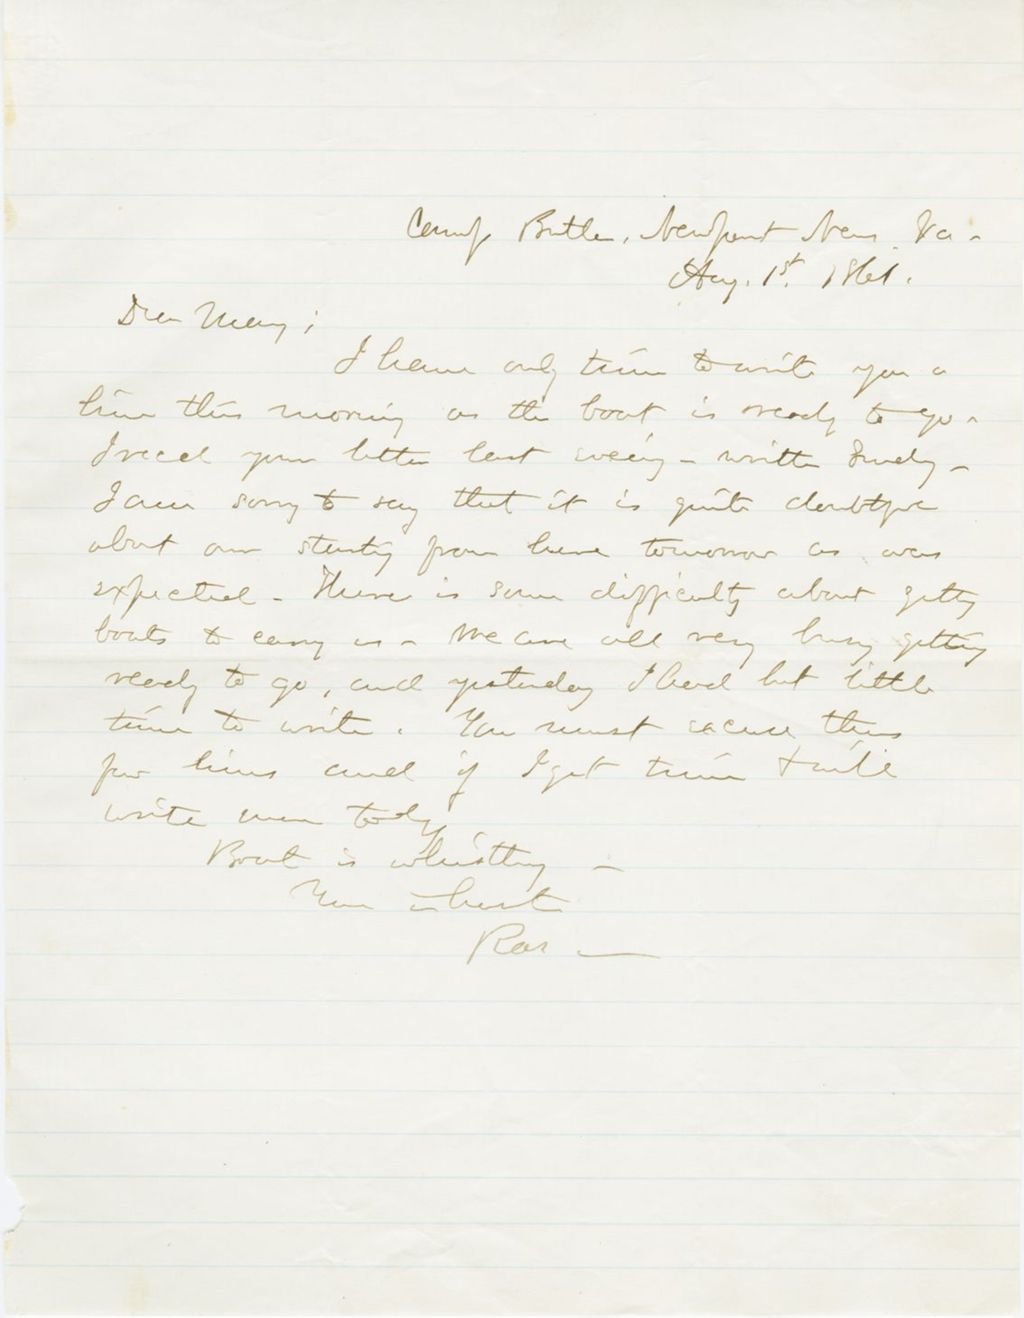 Camp Butler, Newport News. Va -
Aug. 1st. 1861.
Dear Mary;
I have only time to write you a
line this morning as the boat is ready to go -
I recd your letter last evening - written Sunday -
I am sorry to say that it is quite doubtful
about our starting from here tomorrow as was
expected - There is some difficulty about getting
boats to carry us - We are all very busy getting
ready to go, and yesterday I had but little
time to write. You must excuse these
few lines and if I get time I will
write more today
Boat is whistling -
Yours in haste